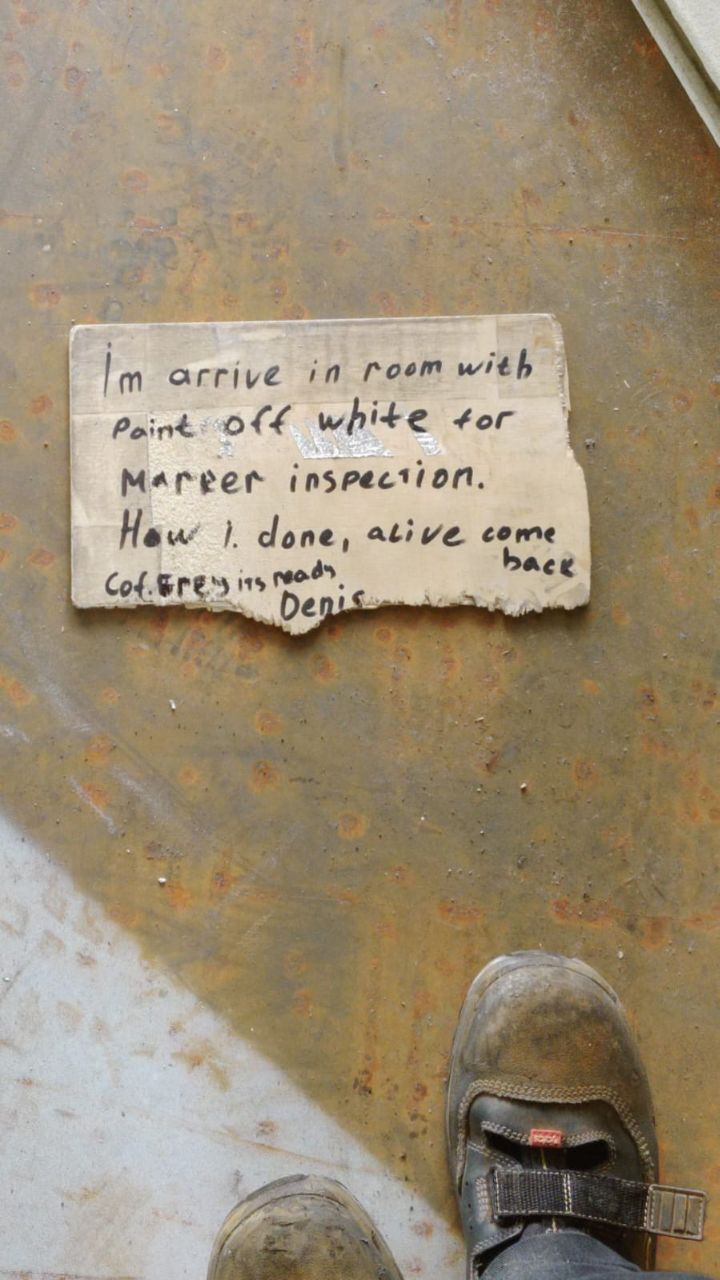 I'm arrive in room with
Paint off white for
Marker inspection.
How I. done, alive come
back
Cof. Frey its ready
Denis